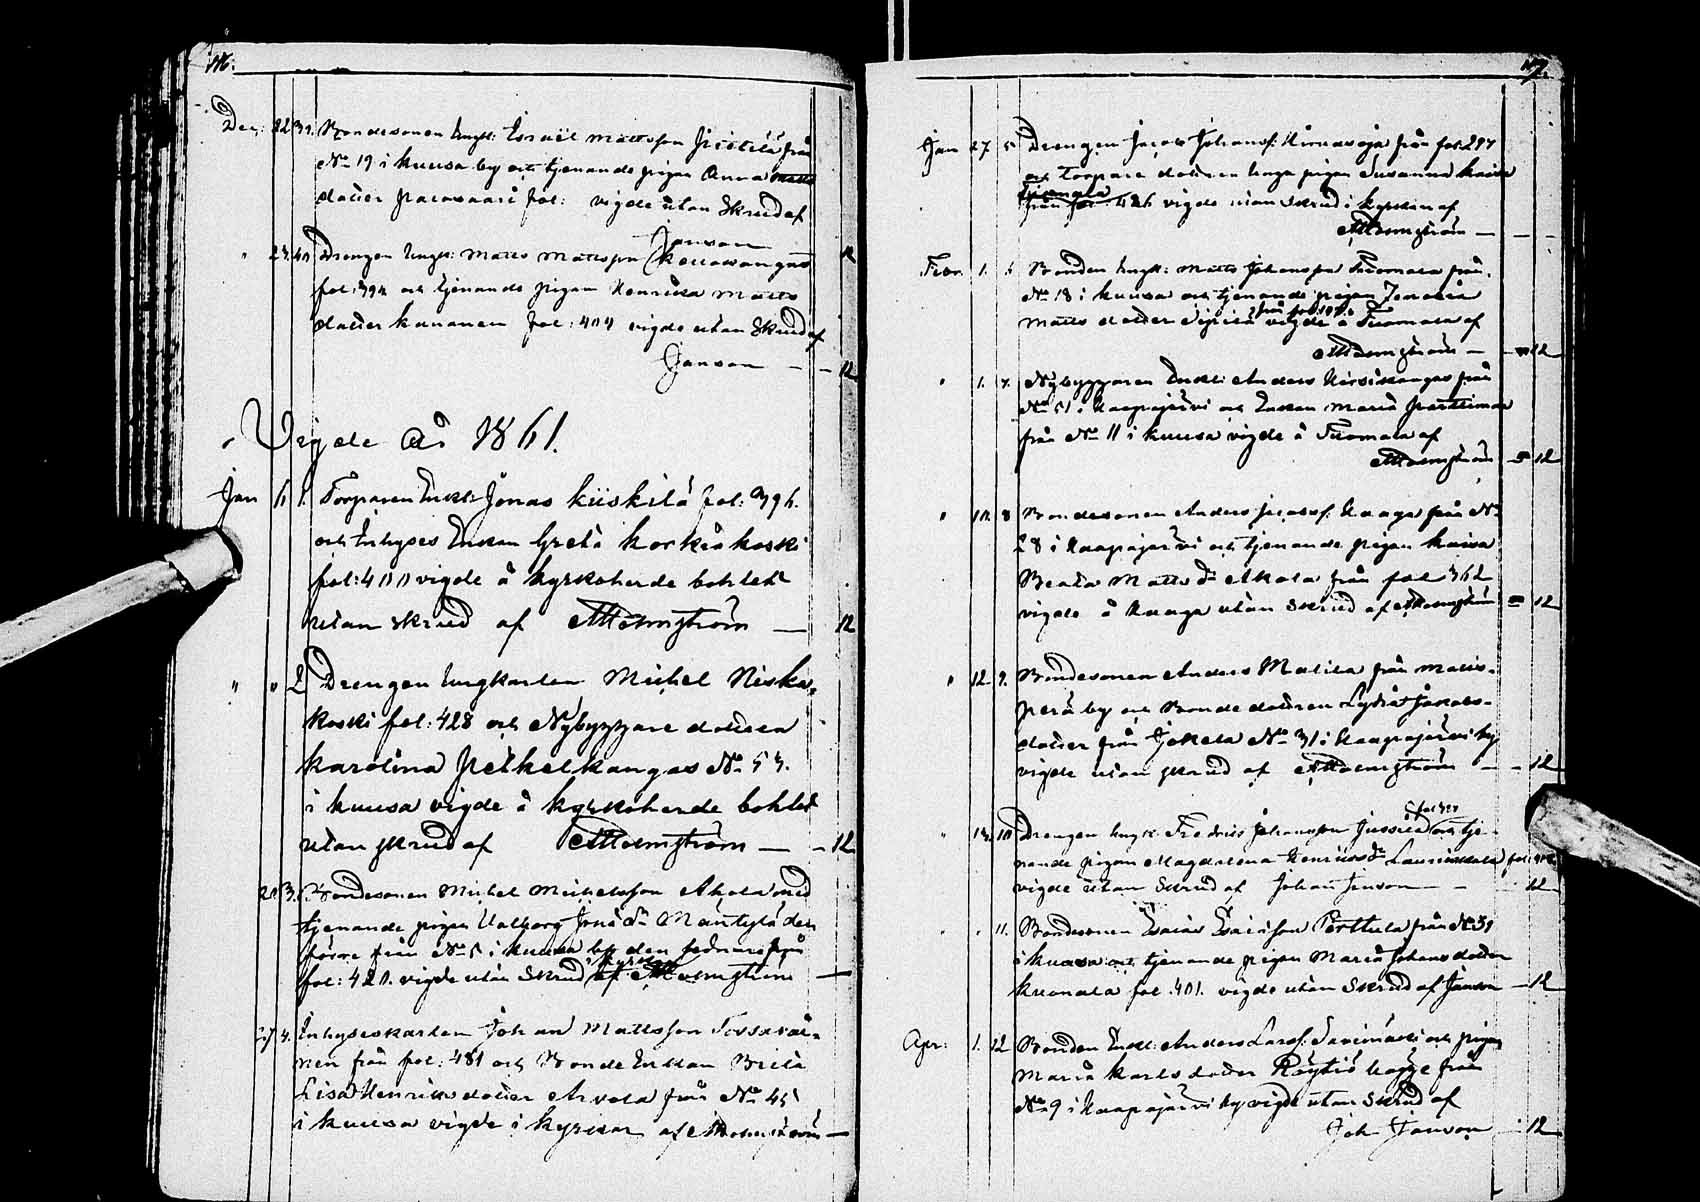 116.
Dec: 22 39. Bondesonen Ungk: Israël Mattsson från
No 19 i Kuusa by och tjenande pigan Anna Matts
dotter Palovaari fol: vigde utan Skrud af
Janson 12
" 23. 40 Drengen Ungk: Matts Mattsson
fol: 394 och tjenande pigan Henrika Matts
dotter Kananen fol: 404 vigde utan Skrud af
Janson — - 12
Vigde År 1861.
Jan 6 1. Torparen Enkl: Jonas Kiiskilä fol: 396.
och Inhyses Enkan Greta Korkiakoski
fol: 400 vigde å Kyrkoherde bohlet
utan skrud af Malmström — 12
" " 2 Drengen Ungkarlen Michel Niska-
koski fol: 428 och Nybyggare dottren
Karolina Peihelkangas No 53.
i Kuusa vigde å Kyrkoherde bohlet
utan skrud af Malmström — - 12
20 3. Bondesonen Michel Michelsson Ahola med
tjenande pigan Valborg Jonæ dr Mäntylä den
förre från No 5 i Kuusa by den sednare från
fol: 420. vigde utan Skrud i kyrkan af Malmström —
27 4. Inhyseskarlen Johan Mattsson Tossavai-
nen från fol: 481 och Bonde Enkan Brita
Lisa Henriksdotter Arvola från No 45
i Kuusa vigde i kyrkan af Malmström —
117.
Jan 27 5 Drengen Jacob Johanss: Hirvasoja från fol 297
och Torpare dottren Unga pigan Susanna Kaisa
från fol: 426 vigde utan Skrud i kyrkan af
Malmström — - -
Febr. 1. 6 Bonden Ungk: Matts Johansson Tuomala från
No 18 i Kuusa och tjenande pigan
Matts dotter Sipilä från fol vigde å Tuomala af
Malmström — - 12
" 1. 7. Nybyggaren Enkl: Anders Hirsikangas från
No 51 i Haapajärvi och Enkan Maria Parttimaa
från No 11 i Kuusa vigde å Tuomala af
Malmström — 12
" 10. 8 Bondesonen Anders Jacobss: Haaga från No
28 i Haapajärvi och tjenande pigan Kaisa
Beata Matts dr Ahola från fol 362
vigde å Haaga utan skrud af Malmström — 12
" 12. 9. Bondesonen Anders Malila från Mattis-
perä by och Bonde dottren Lydia Jakobs-
dotter från Jokela No 31 i Haapajärvi by
vigde utan skrud af Malmström — - 12
" 13. 10 Drengen Ungk: Fredric Johansson Jussila och tje-
nande pigan Magdalena Henriks dr fol:
vigde utan Skrud af Johan Janson — - 12
" " 11. Bondesonen Esaias Esaiasson Perttula från No 39
i Kuusa och tjenande pigan Maria Johans dotter
Kuonala fol. 401. vigde utan Skrud af Janson — 12
Apr: 1. 12 Bonden Enkl: Anders Larss: Savimäki och pigan
Maria Karls dotter Röytiö bägge från
No 9 i Haapajärvi by vigde utan Skrud af
Joh Janson - 12